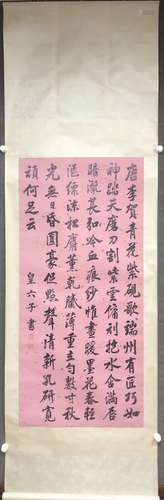 唐李賀青花紫硯歌端州有匠巧如
神踏天磨刀割紫雲傭刓抱水含滿唇
暗灑萇弘冷血痕紗帷晝暖墨花春輕
漚漂沫松麝薰乾膩薄重立勻數寸秋
光無日昏圓豪促點聲清新孔研寬
頑何足云
皇六子書